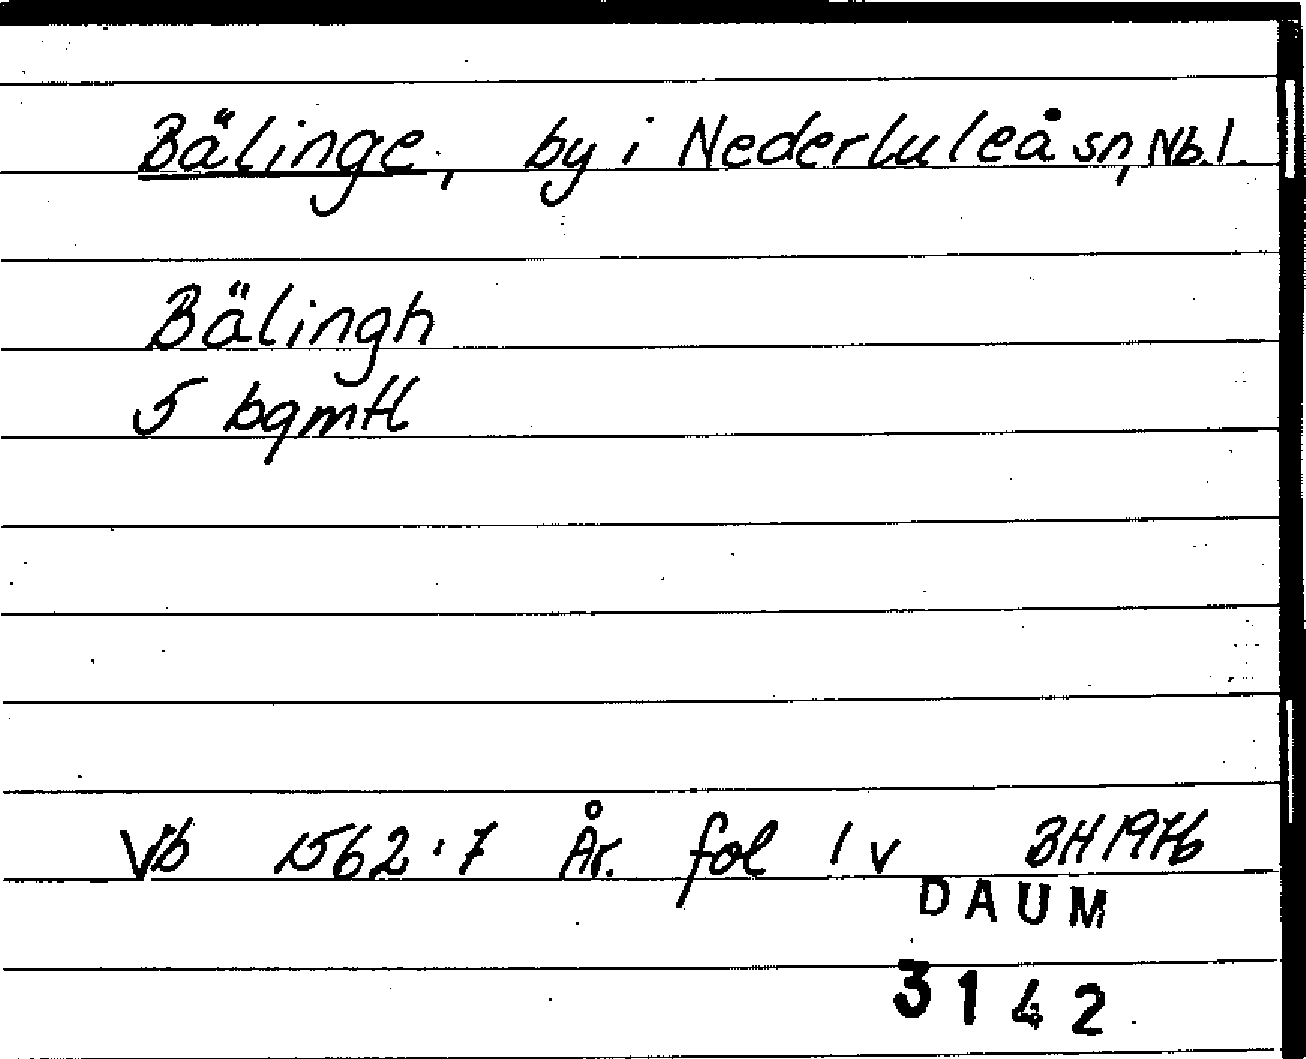 Bälinge, by i Nederluleå sn, Nb.l.
Bälingh
5 bgmtl
Vb 1562:7 År. fol 1 v BH 1976
DAUM
3142